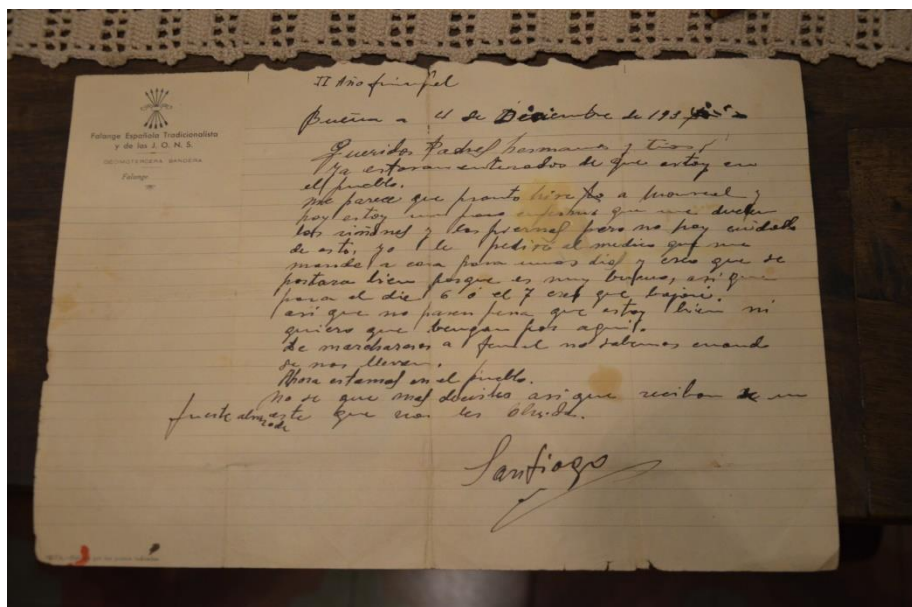 Falange Española Tradicionalista
y de las J. O. N. S.
DECIMOTERCERA BANDERA
Falange
II Año triunfal
a 4 de Diciembre de 193
Queridos Padres hermanos y tios,
Ya estaran enterados de que estoy en
el pueblo.
me parece que pronto a
hoy estoy un poco enfermo que me duelen
los riñones y las piernas pero no hay cuidado
de esto, yo le pediré al medico que me
mande a casa para unos dias y creo que se
portara bien porque es muy bueno, asi que
para el dia 6 ó el 7 creo que bajaré.
asi que no pasen pena que estoy bien ni
quiero que bengan por aqui.
de marcharnos a no sabemos cuando
se nos llevan.
Ahora estamos en el pueblo.
no se que mas decirles asi que reciban un
fuerte abrazo de este que no les olvida.
Santiago